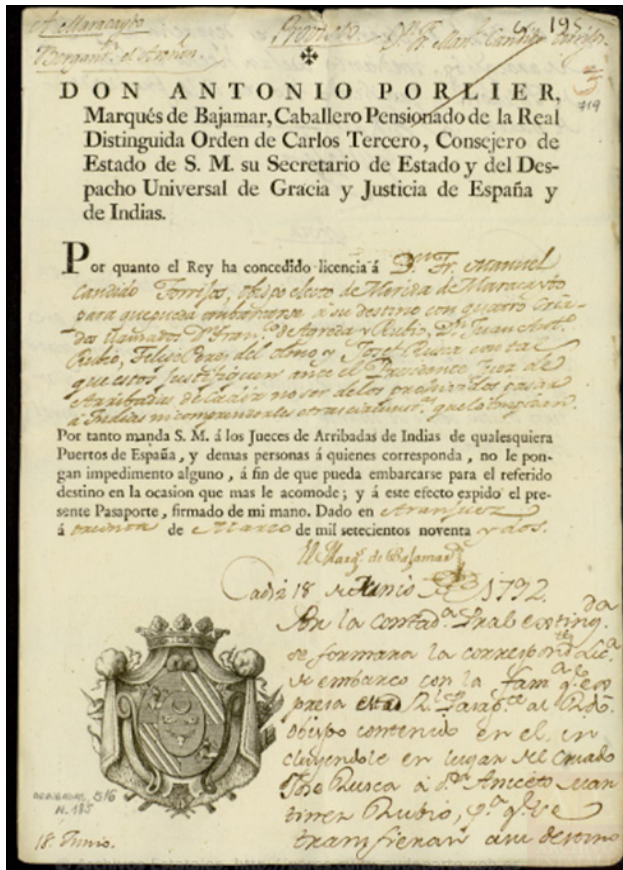 A Maracaybo
Bergant.ⁿ el
195
719
DON ANTONIO PORLIER,
Marqués de Bajamar, Caballero Pensionado de la Real
Distinguida Orden de Carlos Tercero, Consejero de
Estado de S. M. su Secretario de Estado y del Des-
pacho Universal de Gracia y Justicia de España y
de Indias.
Por quanto el Rey ha concedido licencia á D.ⁿ Fr. Manuel
Candido Torrijos, obispo electo de Merida de Maracaybo
para que pueda embarcarse a su destino con quatro Cria-
dos llamados D.ⁿ Fran.ᶜᵒ de Agreda y Rubio, D.ⁿ Juan Ant.º
Rubio, Felipe Perez del olmo y Josef Rusca con tal
que estos justifiquen ante el Presidente Juez de
Arribadas de Cadiz no ser de los prohividos pasar
á Indias ni comprenderles otras que lo impidan.
Por tanto manda S. M. á los Jueces de Arribadas de Indias de qualesquiera
Puertos de España, y demas personas á quienes corresponda, no le pon-
gan impedimento alguno, á fin de que pueda embarcarse para el referido
destino en la ocasion que mas le acomode; y á este efecto expido el pre-
sente Pasaporte, firmado de mi mano. Dado en Aranjuez
á treinta de Marzo de mil setecientos noventa y dos.
El Marq.ˢ de Bajamar
Cadiz 18 de Junio de 1792.
Por la contad.ᵃ
se formara la correspond.ᵗᵉ Lic.ᵃ
de embarco con la fam.ᵃ q.ᵉ ex
presa este R.ˡ Pasap.ᵗᵉ al
obispo contenido en el, in
cluyendole en lugar del Criado
Jose Rusca á D.ⁿ Aniceto Mar
tinez Rubio, p.ᵃ q.ᵉ se
transfieran a su destino
ARRIBADAS, 516
N. 185
18. Junio.